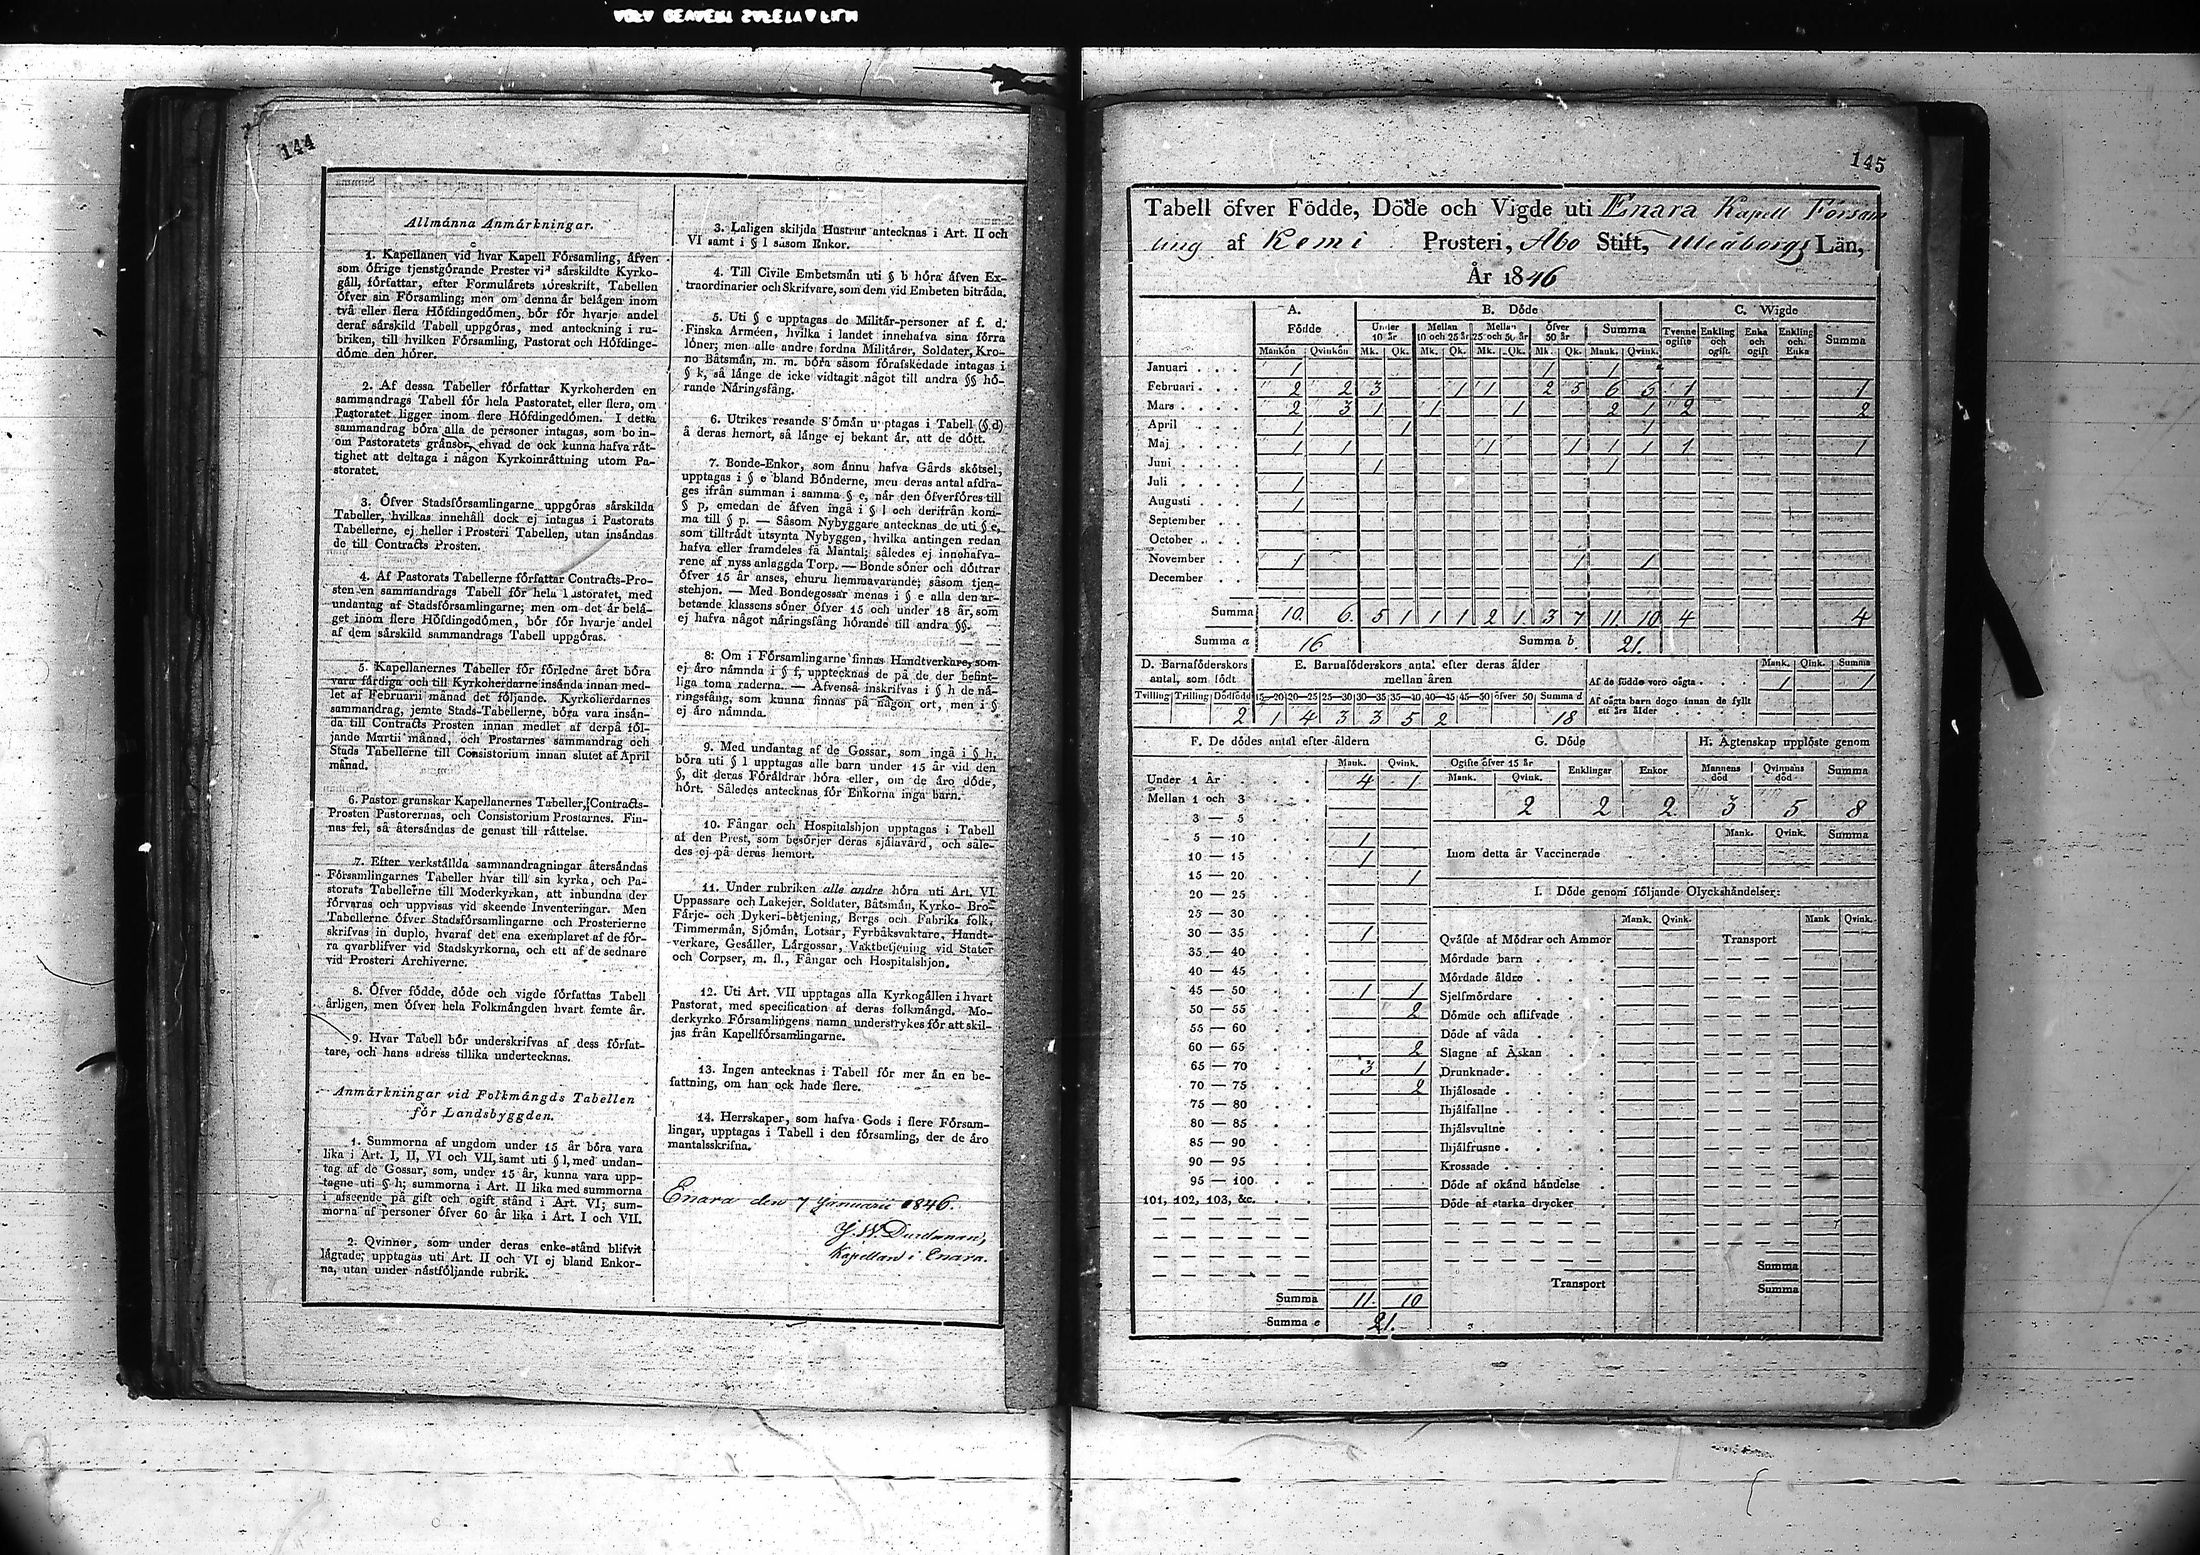 144
Allmänna Anmärkningar.
1. Kapellanen vid hvar Kapell Församling, äfven
som öfrige tjenstgörande Prester vid särskildte Kyrko-
gåll, författar, efter Formulärets föreskrift, Tabellen
öfver sin Församling; men om denna är belägen inom
två eller flera Höfdingedömen, bör för hvarje andel
deraf särskild Tabell uppgöras, med anteckning i ru-
briken, till hvilken Församling, Pastorat och Höfdinge-
döme den hörer.
2. Af dessa Tabeller författar Kyrkoherden en
sammandrags Tabell för hela Pastoratet, eller flera, om
Pastoratet ligger inom flere Höfdingedömen. I detta
sammandrag böra alla de personer intagas, som bo in-
om Pastoratets gränsor, ehvad de ock kunna hafva rät-
tighet att deltaga i någon Kyrkoinråttning utom Pa-
storatet.
3. Öfver Stadsförsamlingarne uppgöras särskilda
Tabeller, hvilkas innehåll dock ej intagas i Pastorats
Tabellerne, ej heller i Prosteri Tabellen, utan insändas
de till Contracts Prosten.
4. Af Pastorats Tabellerne författar Contracts-Pro-
sten en sammandrags Tabell för hela Pastoratet, med
undantag af Stadsförsamlingarne; men om det är belä-
get inom flere Höfdingedömen, bör för hvarje andel
af dem särskild sammandrags Tabell uppgöras.
5. Kapellanernes Tabeller för förledne året böra
vara färdiga och till Kyrkoherdarne insända innan med-
let af Februarii månad det följande. Kyrkoherdarnes
sammandrag, jemte Stads-Tabellerne, böra vara insän-
da till Contracts Prosten innan medlet af derpå föl-
jande Martii månad, och Prostarnes sammandrag och
Stads Tabellerne till Consistorium innan slutet af April
månad.
6. Pastor granskar Kapellanernes Tabeller, Contracts-
Prosten Pastorernas, och Consistorium Prostarnes. Fin-
nas fel, så återsändas de genast till rättelse.
7. Efter verkställda sammandragningar återsändas
Församlingarnes Tabeller hvar till sin kyrka, och Pa-
storats Tabellerne till Moderkyrkan, att inbundna der
förvaras och uppvisas vid skeende Inventeringar. Men
Tabellerne öfver Stadsförsamlingarne och Prosterierne
skrifvas in duplo, hvaraf det ena exemplaret af de för-
ra qvarblifver vid Stadskyrkorna, och ett af de sednare
vid Prosteri Archiverne.
8. Öfver födde, döde och vigde författas Tabell
årligen, men öfver hela Folkmängden hvart femte år.
9. Hvar Tabell bör underskrifvas af dess förfat-
tare, och hans adress tillika undertecknas.
Anmärkningar vid Folkmängds Tabellen
för Landsbyggden.
1. Summorna af ungdom under 15 år böra vara
lika i Art. I, II, VI och VII, samt uti § l, med undan-
tag af de Gossar, som, under 15 år, kunna vara upp-
tagne uti § h; summorna i Art. II lika med summorna
i afseende på gift och ogift stånd i Art. VI; sum-
morna af personer öfver 60 år lika i Art. I och VII.
2. Qvinnor, som under deras enke-stånd blifvit
lägrade, upptagas uti Art. II och VI ej bland Enkor-
na, utan under nästföljande rubrik.
3. Laligen skiljda Hustrur antecknas i Art. II och
VI samt i § l såsom Enkor.
4. Till Civile Embetsmän uti § b höra äfven Ex-
traordinarier och Skrifvare, som dem vid Embeten biträda.
5. Uti § c upptagas de Militär-personer af f. d.
Finska Arméen, hvilka i landet innehafva sina förra
löner; men alle andre fordna Militärer, Soldater, Kro-
no Båtsmän, m. m. böra såsom förafskedade intagas i
§ k, så länge de icke vidtagit något till andra §§ hö-
rande Näringsfång.
6. Utrikes resande Sjömän upptagas i Tabell (§ d)
å deras hemort, så länge ej bekant är, att de dött.
7. Bonde-Enkor, som ännu hafva Gårds skötsel,
upptagas i § e bland Bönderne, men deras antal afdra-
ges ifrån summan i samma § e, när den öfverföres till
§ p, emedan de äfven ingå i § l och derifrån kom-
ma till § p. — Såsom Nybyggare antecknas de uti § e,
som tillträdt utsynta Nybyggen, hvilka antingen redan
hafva eller framdeles få Mantal; således ej innehafva-
rene af nyss anlaggda Torp. — Bonde söner och döttrar
öfver 15 år anses, ehuru hemmavarande, såsom tjen-
stehjon. — Med Bondegossar menas i § e alla den ar-
betande klassens söner öfver 15 och under 18 år, som
ej hafva något näringsfång hörande till andra §§.
8. Om i Församlingarne finnas Handtverkare, som
ej äro nämnda i § f, upptecknas de på de der befint-
liga toma raderna. — Äfvenså inskrifvas i § h de nä-
ringsfång, som kunna finnas på någon ort, men i §
ej äro nämnda.
9. Med undantag af de Gossar, som ingå i § h,
böra uti § l upptagas alle barn under 15 år vid den
§, dit deras Föräldrar höra eller, om de äro döde,
hört. Således antecknas för Enkorna inga barn.
10. Fångar och Hospitalshjon upptagas i Tabell
af den Prest, som besörjer deras själavård, och såle-
des ej på deras hemort.
11. Under rubriken alle andre höra uti Art. VI
Uppassare och Lakejer, Soldater, Båtsmän, Kyrko- Bro-
Färje- och Dykeri-betjening, Bergs och Fabriks folk,
Timmermän, Sjömän, Lotsar, Fyrbåksvaktare, Handt-
verkare, Gesäller, Lärgossar, Vaktbetjening vid Stater
och Corpser, m. fl., Fångar och Hospitalshjon.
12. Uti Art. VII upptagas alla Kyrkogällen i hvart
Pastorat, med specification af deras folkmängd. Mo-
derkyrko Församlingens namn understrykes för att skil-
jas från Kapellförsamlingarne.
13. Ingen antecknas i Tabell för mer än en be-
fattning, om han ock hade flere.
14. Herrskaper, som hafva Gods i flere Försam-
lingar, upptagas i Tabell i den församling, der de äro
mantalsskrifna.
Enara den 7 Januarii 1846.
Kapellan i Enara.
145
Tabell öfver Födde, Döde och Vigde uti Enara Kapell Försam
ling af Kemi Prosteri, Åbo Stift, Uleåborgs Län,
År 1846
A. B. Döde C. Wigde
Födde Under 10 år Mellan 10 och 25 år Mellan 25 och 50 år Öfver 50 år Summa Tvenne ogifte Enkling och ogift. Enka och ogift Enkling och Enka Summa
Mankön Qvinkön Mk. Qk. Mk. Qk. Mk. Qk. Mk. Qk. Mank. Qvink.
Januari 1 1 1
Februari 2 2 3 1 1 2 5 6 5 1 1
Mars 2 3 1 1 1 2 1 2 2
April 1 1 1
Maj 1 1 1 1 1 1 1 1
Juni 1 1
Juli 1
Augusti 1
September
October
November 1 1 1
December
Summa 10. 6. 5 1 1 1 2 1 3 7 11. 10 4 4
Summa a 16 Summa b. 21.
D. Barnaföderskors antal, som födt E. Barnaföderskors antal efter deras ålder mellan åren Mank. Qink. Summa
Af de födde voro oägta 1 1
Tvilling Trilling Dödfödd 15—20 20—25 25—30 30—35 35—40 40—45 45—50 öfver 50 Summa d
Af oägta barn dogo innan de fyllt ett års ålder
2 1 4 3 3 5 2 18
F. De dödes antal efter åldern G. Döde H. Ägtenskap upplöste genom
Mank. Qvink. Ogifte öfver 15 år Mank. Qvink. Enklingar Enkor Mannens död Qvinnans död Summa
Under 1 År 4 1
Mellan 1 och 3 2 2 2 3 5 8
3 — 5
5 — 10 1
10 — 15 1
15 — 20 1
20 — 25
25 — 30
30 — 35 1
35 — 40
40 — 45
45 — 50 1 1
50 — 55 2
55 — 60
60 — 65 2
65 — 70 3 1
70 — 75 2
75 — 80
80 — 85
85 — 90
90 — 95
95 — 100
101, 102, 103, &c.
Summa 11. 10
Summa e 21.
Mank. Qvink. Summa
Inom detta år Vaccinerade
I. Döde genom följande Olyckshändelser:
Mank. Qvink. Mank Qvink.
Qväfde af Mödrar och Ammor Transport
Mördade barn
Mördade äldre
Sjelfmördare
Dömde och aflifvade
Döde af våda
Slagne af Åskan
Drunknade
Ihjälosade
Ihjälfallne
Ihjälsvultne
Ihjälfrusne
Krossade
Döde af okänd händelse
Döde af starka drycker
Summa
Transport Summa